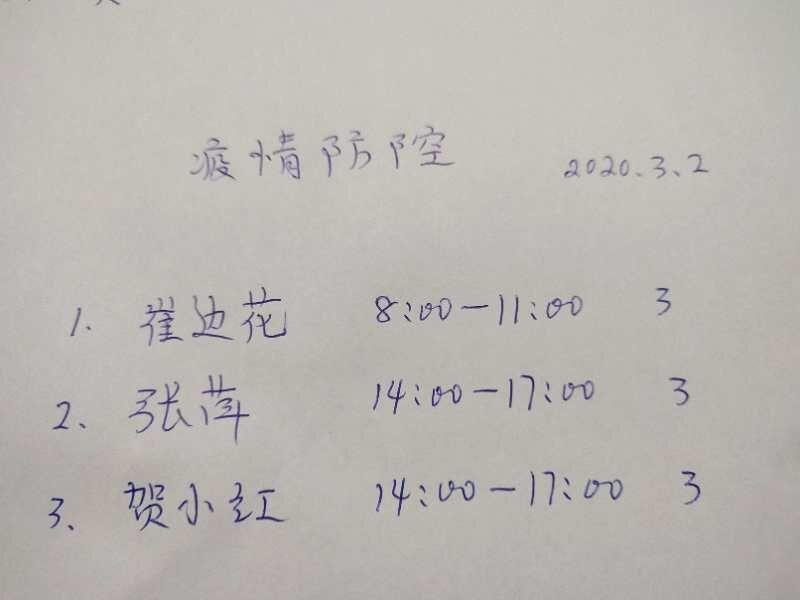 疫情防控 2020.3.2
1. 崔边花 8:00-11:00 3
2、张萍 14:00-17:00 3
3、贺小红 14:00-17:00 3